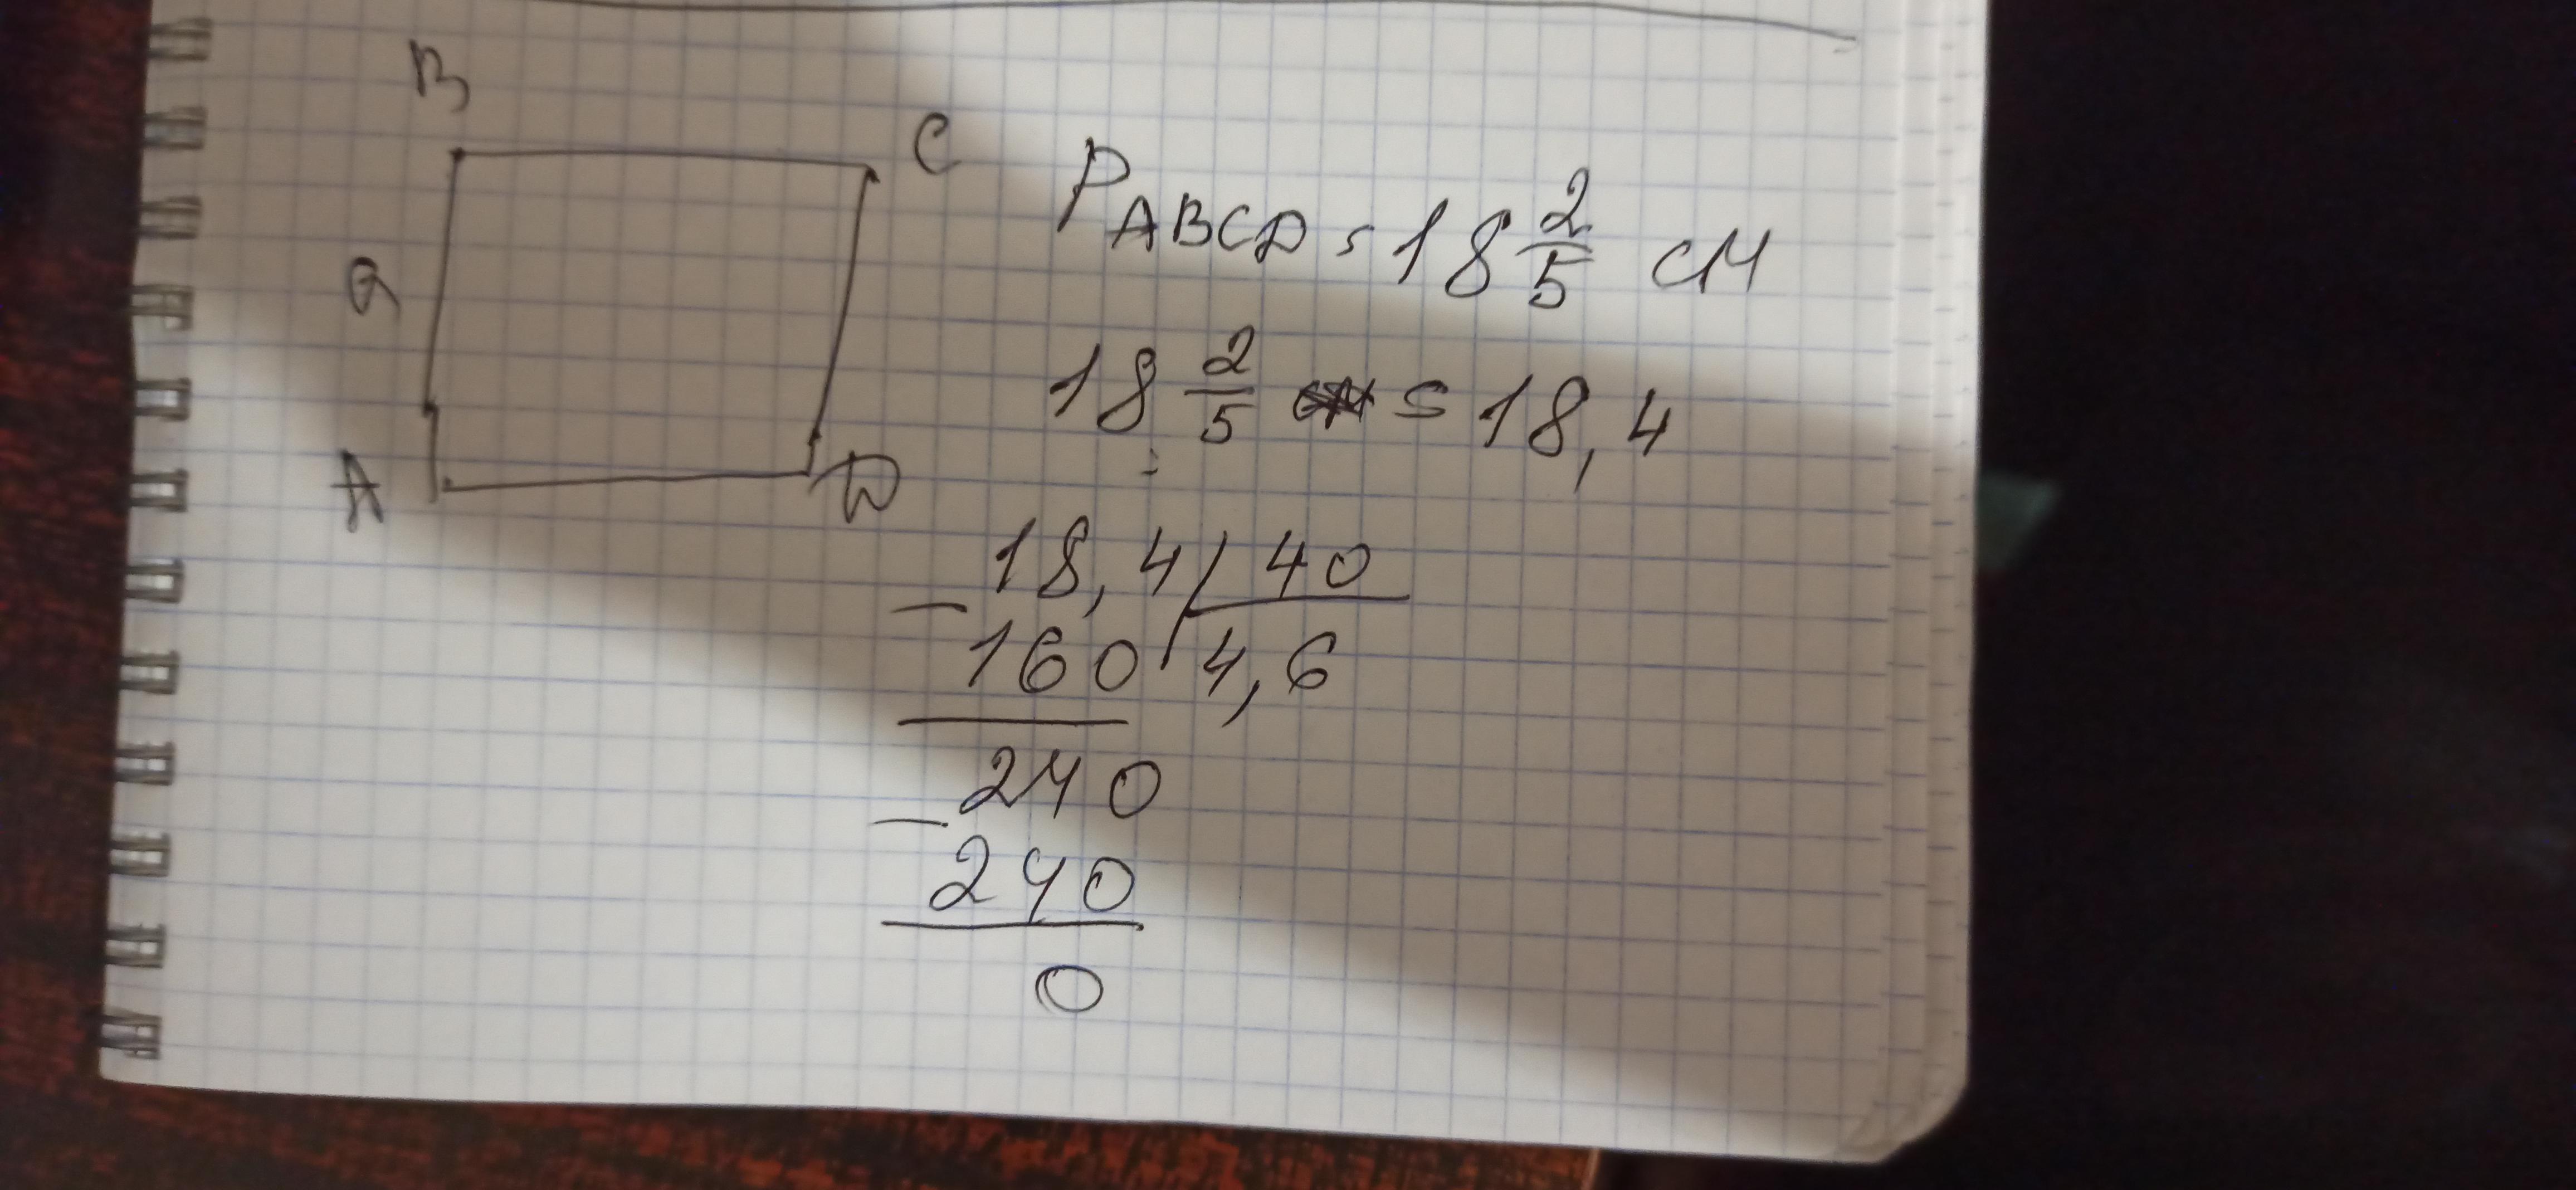 B
C
a
A
D
P ABCD = 18 2/5 см
18 2/5 = 18,4
18,4 | 40
- 160 | 4,6
240
- 240
0